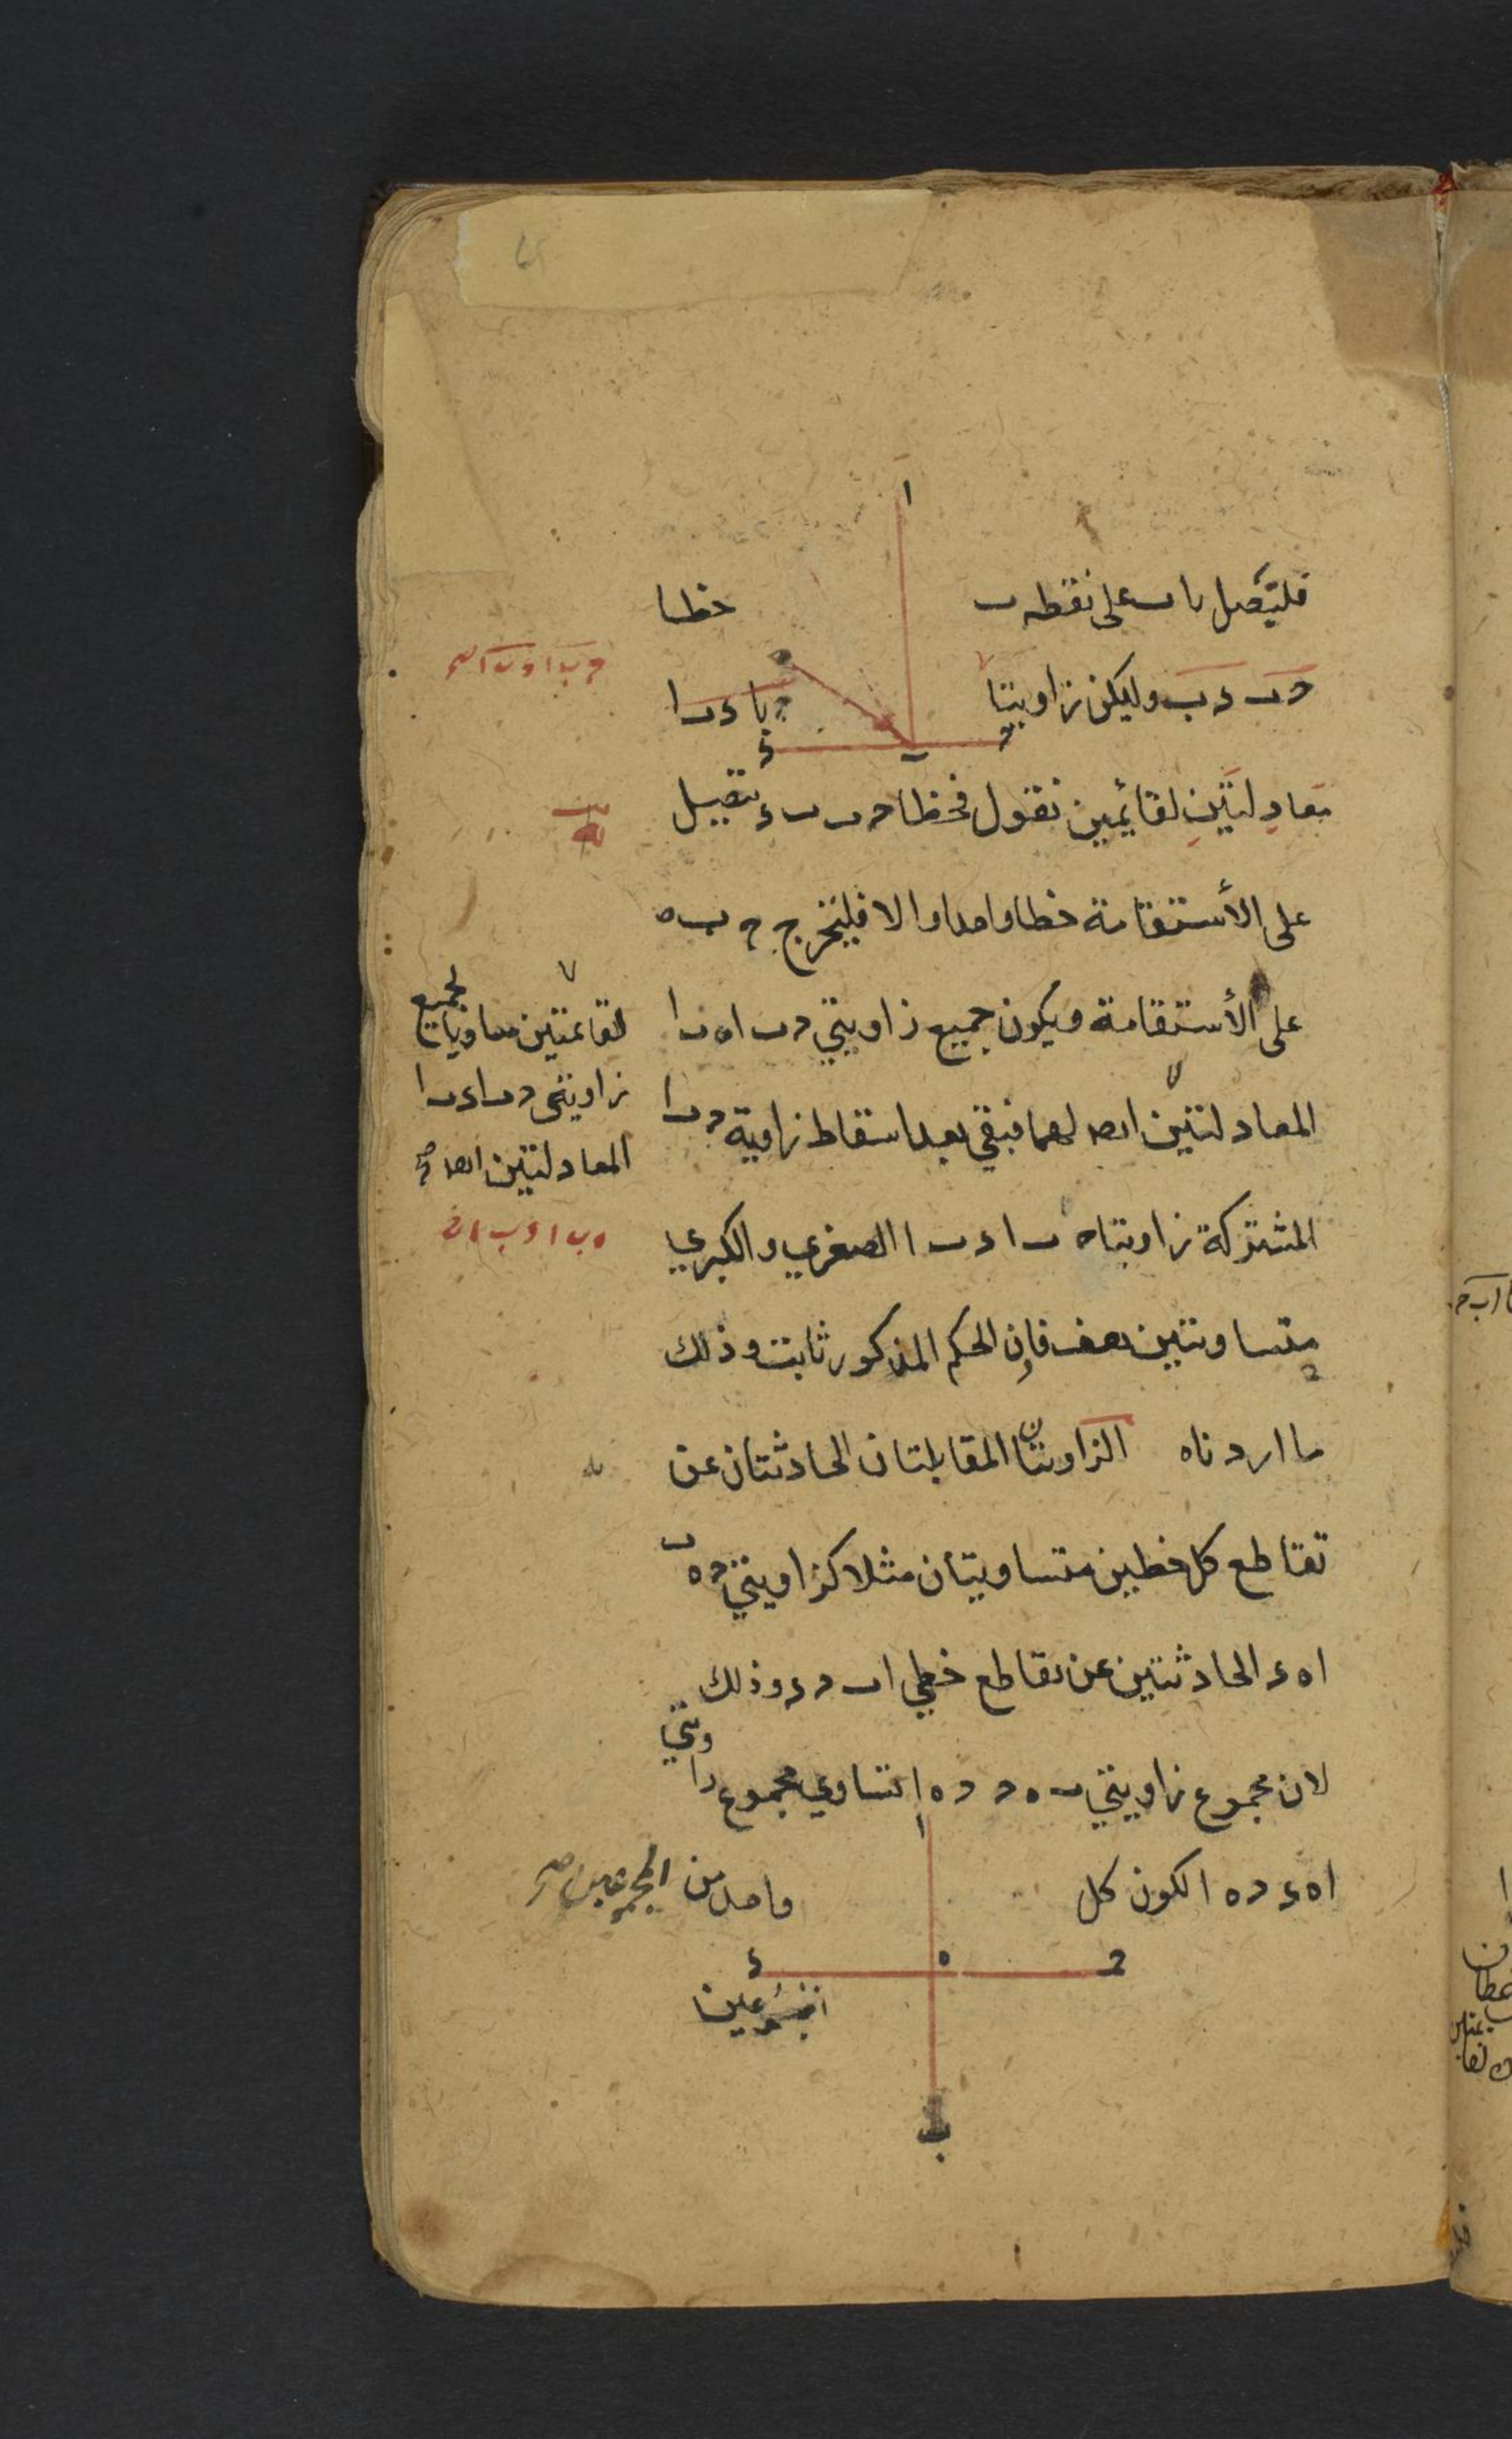 فليتصل باب على نقطه ب خطا
حب دب وليكن زاويتا حبا دبا
معادلتين لقايمين نقول فخطا حب بد يتصل
على الأستقامة خطا واحدا والا فليخرج حب ه
على الأستقامة ويكون جميع زاويتي حبا هبا
المعادلتين ايضا لهما فبقي بعد اسقاط زاوية حبا
المشتركة زاويتا ه ب ا د ب ا الصغري والكبري
متساويتين هف فاذن الحكم المذكور ثابت وذلك
ما اردناه الزاويتان المقابلتان الحادثتان عن
تقاطع كل خطين متساويتان مثلا كزاويتي حه ب
اهد الحادثتين عن تقاطع خطي اب حد وذلك
لان مجموع زاويتي ب ه ح حه ا تساوي مجموع زاويتي
اهد حه ا لكون كل واحد من المجموعين
لقائمتين مساويا لجميع
زاويتي حبا دبا
المعادلتين ايضا
ا
ه
ح
ب
د
ا
ح
ه
د
ب